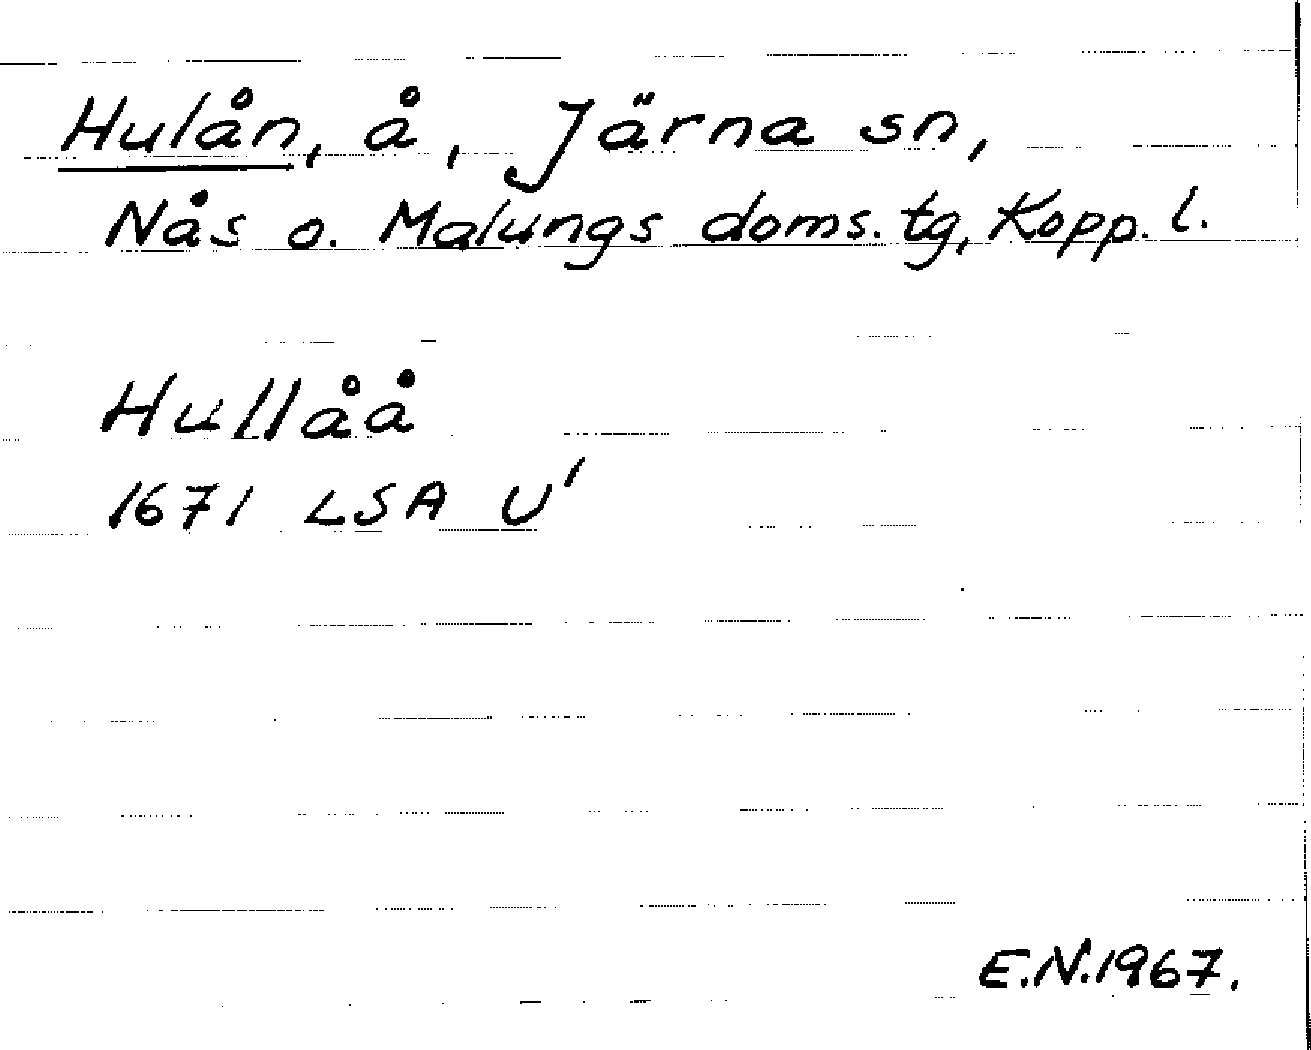 Hulån, å, Järna sn,
Nås o. Malungs doms. tg, Kopp. l.
Hullåå
1671 LSA U'
E.N.1967.